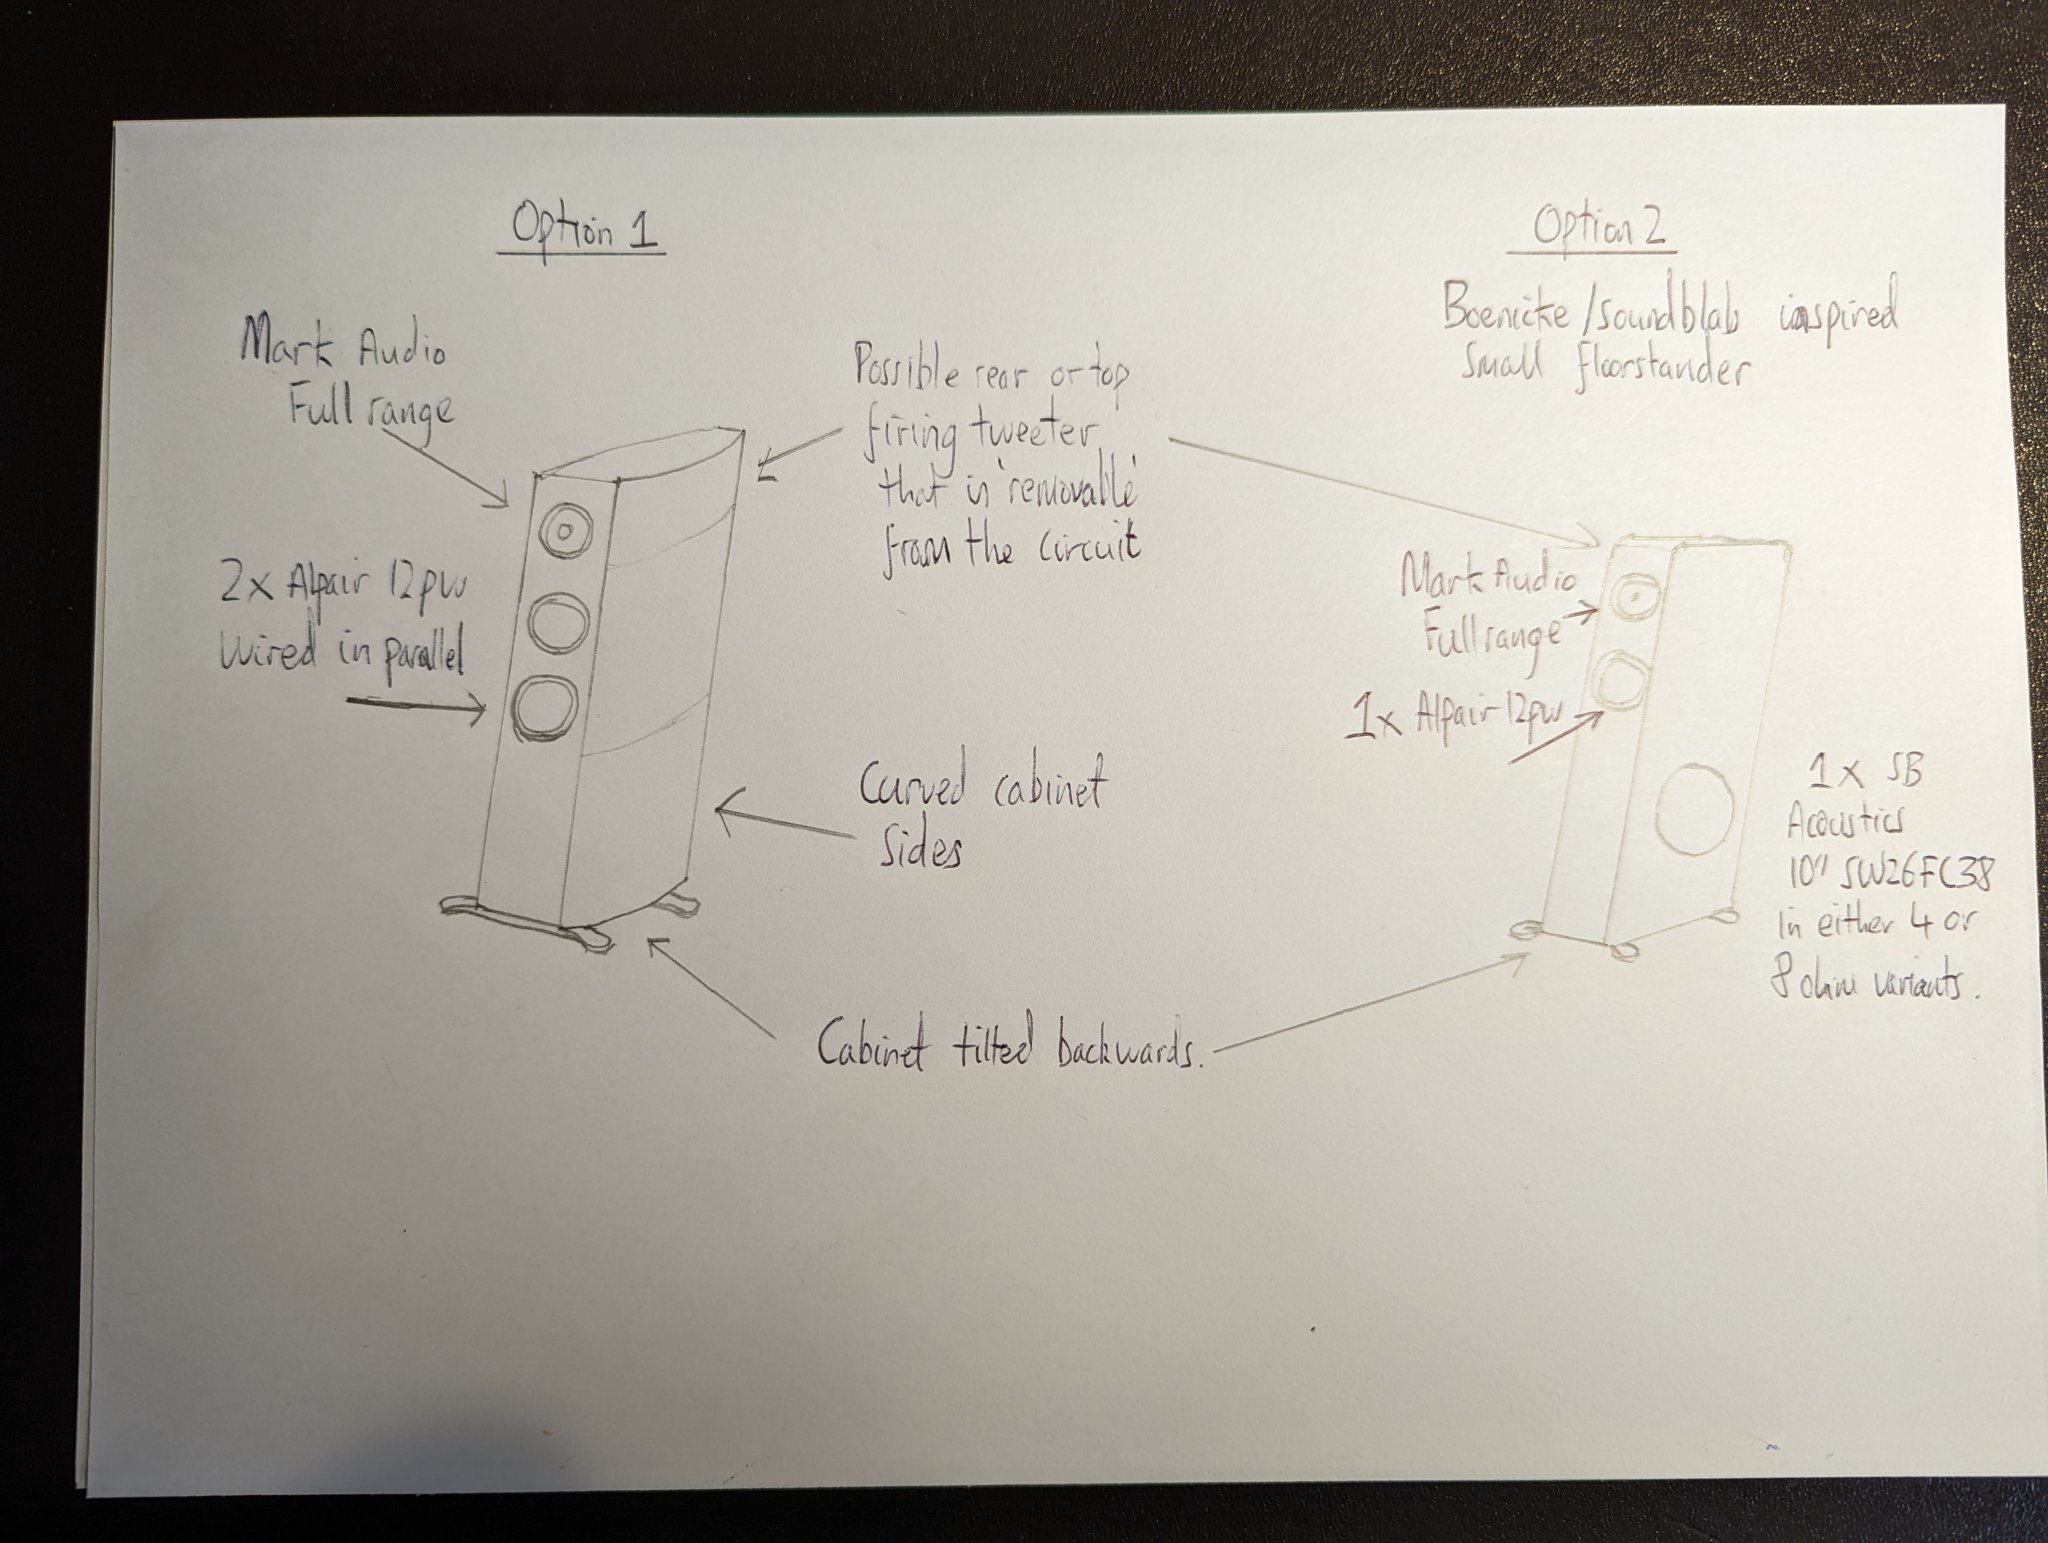 Option 1
Mark Audio
Full range
2x Alpair 12pw
Wired in parallel
Possible rear or top
firing tweeter
that is 'removable'
from the circuit
Curved cabinet
sides
Cabinet tilted backwards.
Option 2
Boenicke/soundblab inspired
small floorstander
Mark Audio
Full range
1x Alpair 12pw
1x SB
Acoustics
10" SW26FC38
in either 4 or
8 ohm variants.